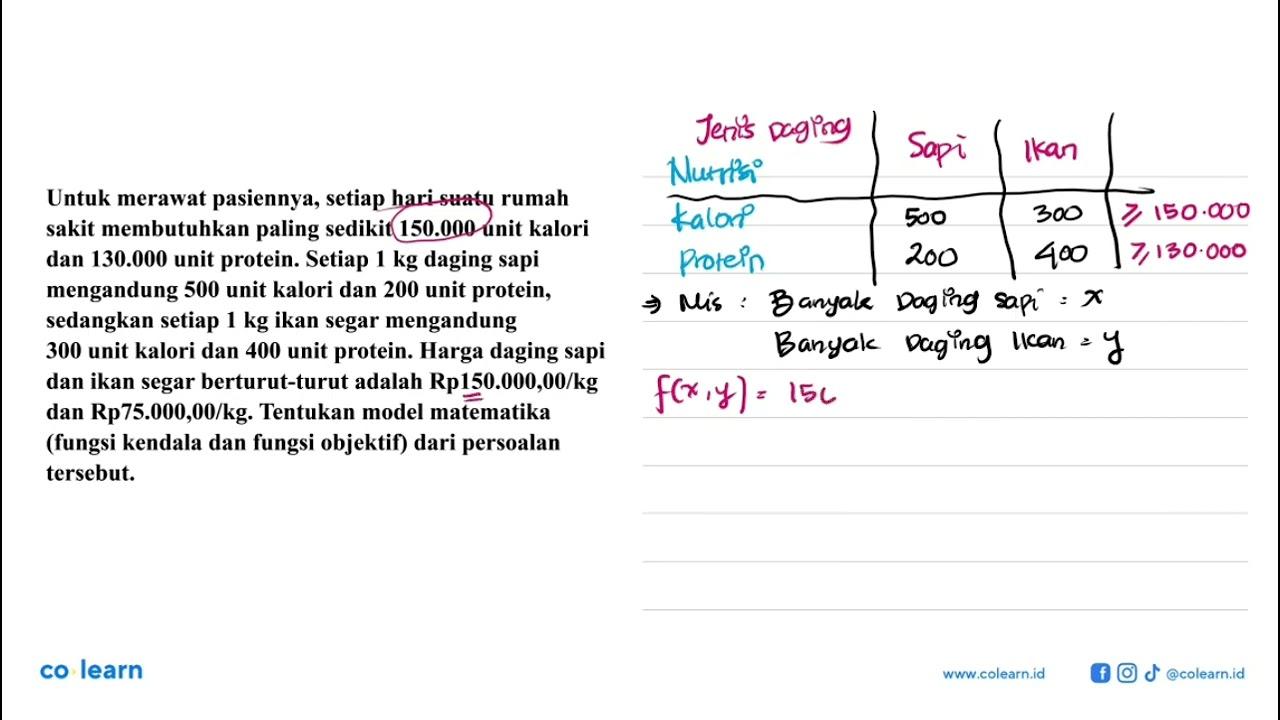 Untuk merawat pasiennya, setiap hari suatu rumah
sakit membutuhkan paling sedikit 150.000 unit kalori
dan 130.000 unit protein. Setiap 1 kg daging sapi
mengandung 500 unit kalori dan 200 unit protein,
sedangkan setiap 1 kg ikan segar mengandung
300 unit kalori dan 400 unit protein. Harga daging sapi
dan ikan segar berturut-turut adalah Rp150.000,00/kg
dan Rp75.000,00/kg. Tentukan model matematika
(fungsi kendala dan fungsi objektif) dari persoalan
tersebut.
Jenis Daging Sapi Ikan
Nutrisi
Kalori 500 300 ≥ 150.000
Protein 200 400 ≥ 130.000
⇒ Mis : Banyak Daging sapi = x
Banyak Daging Ikan = y
f(x,y) = 150
co learn
www.colearn.id @colearn.id